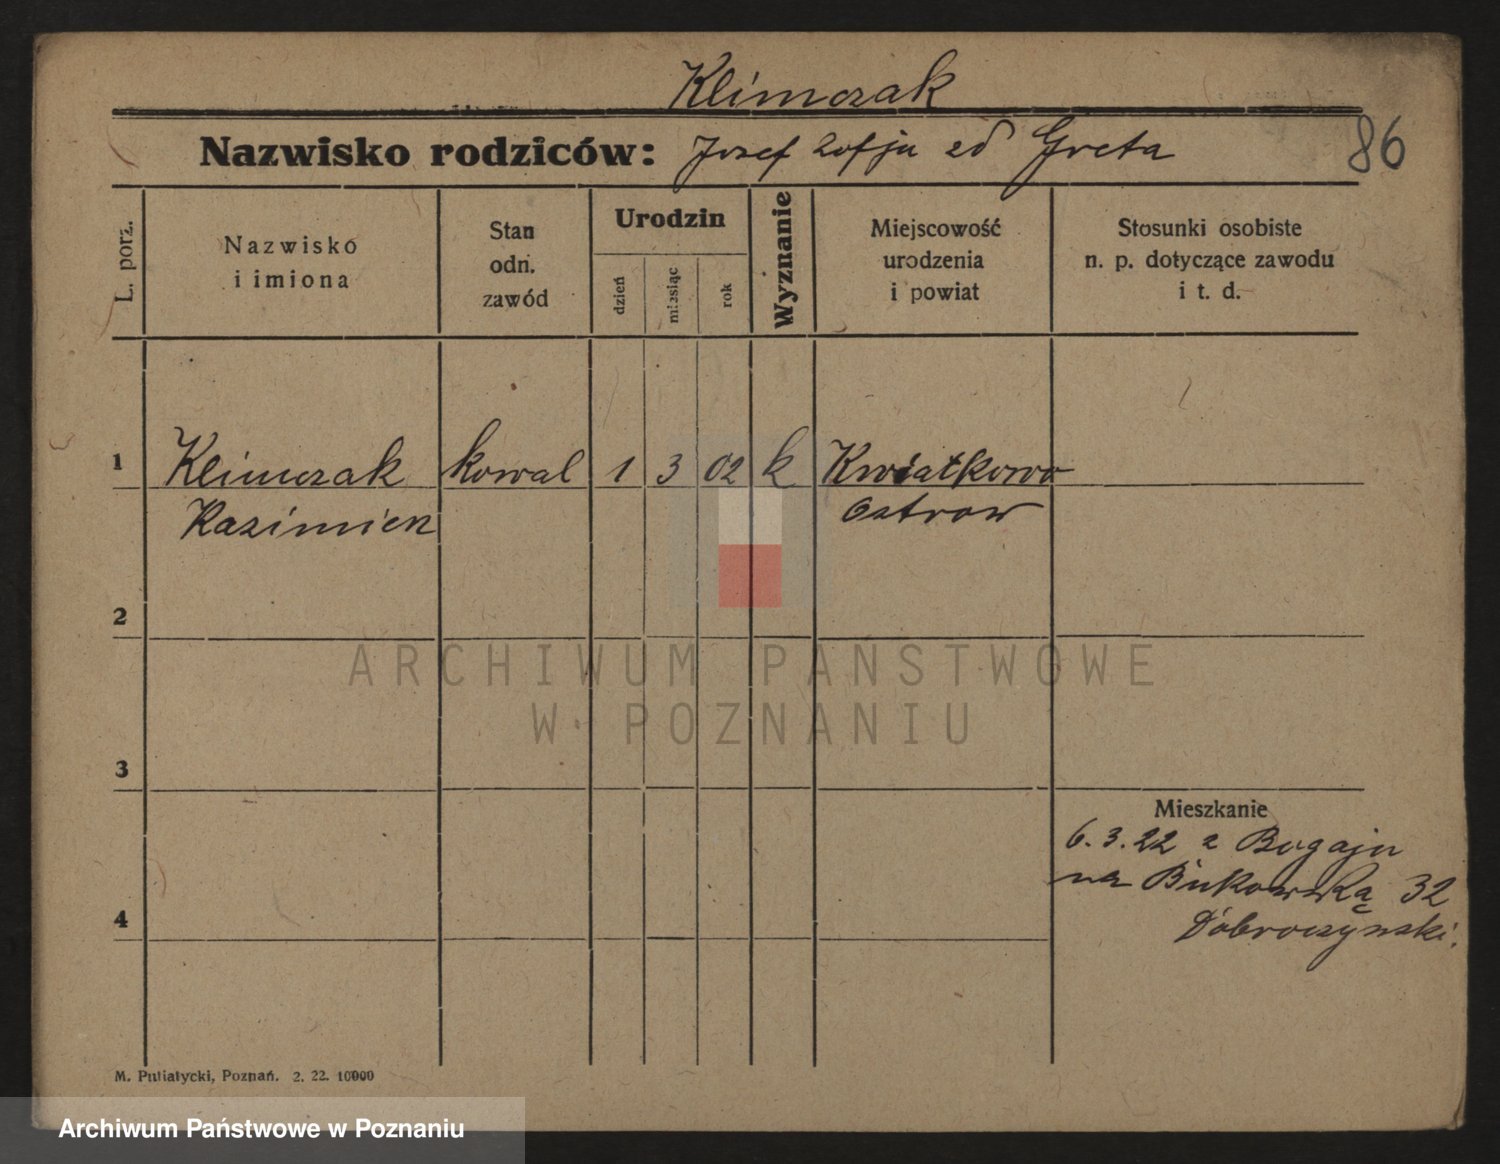 Klimczak
Nazwisko rodziców: Josef Zofju zd Greta
86
L. porz.
Nazwisko
i imiona
Stan
odn.
zawód
Urodzin
dzień
miesiąc
rok
Wyznanie
Miejscowość
urodzenia
i powiat
Stosunki osobiste
n. p. dotyczące zawodu
i t. d.
1 Klimczak kowal 1 3 02 k Kwiatkowo
Kazimierz Ostrow
2
ARCHIWUM PAŃSTWOWE
W POZNANIU
3
Mieszkanie
6.3.22 z Bugaju
na Bukowską 32
4
Dobroczynski.
M. Putiatycki, Poznań. 2. 22. 10000
Archiwum Państwowe w Poznaniu